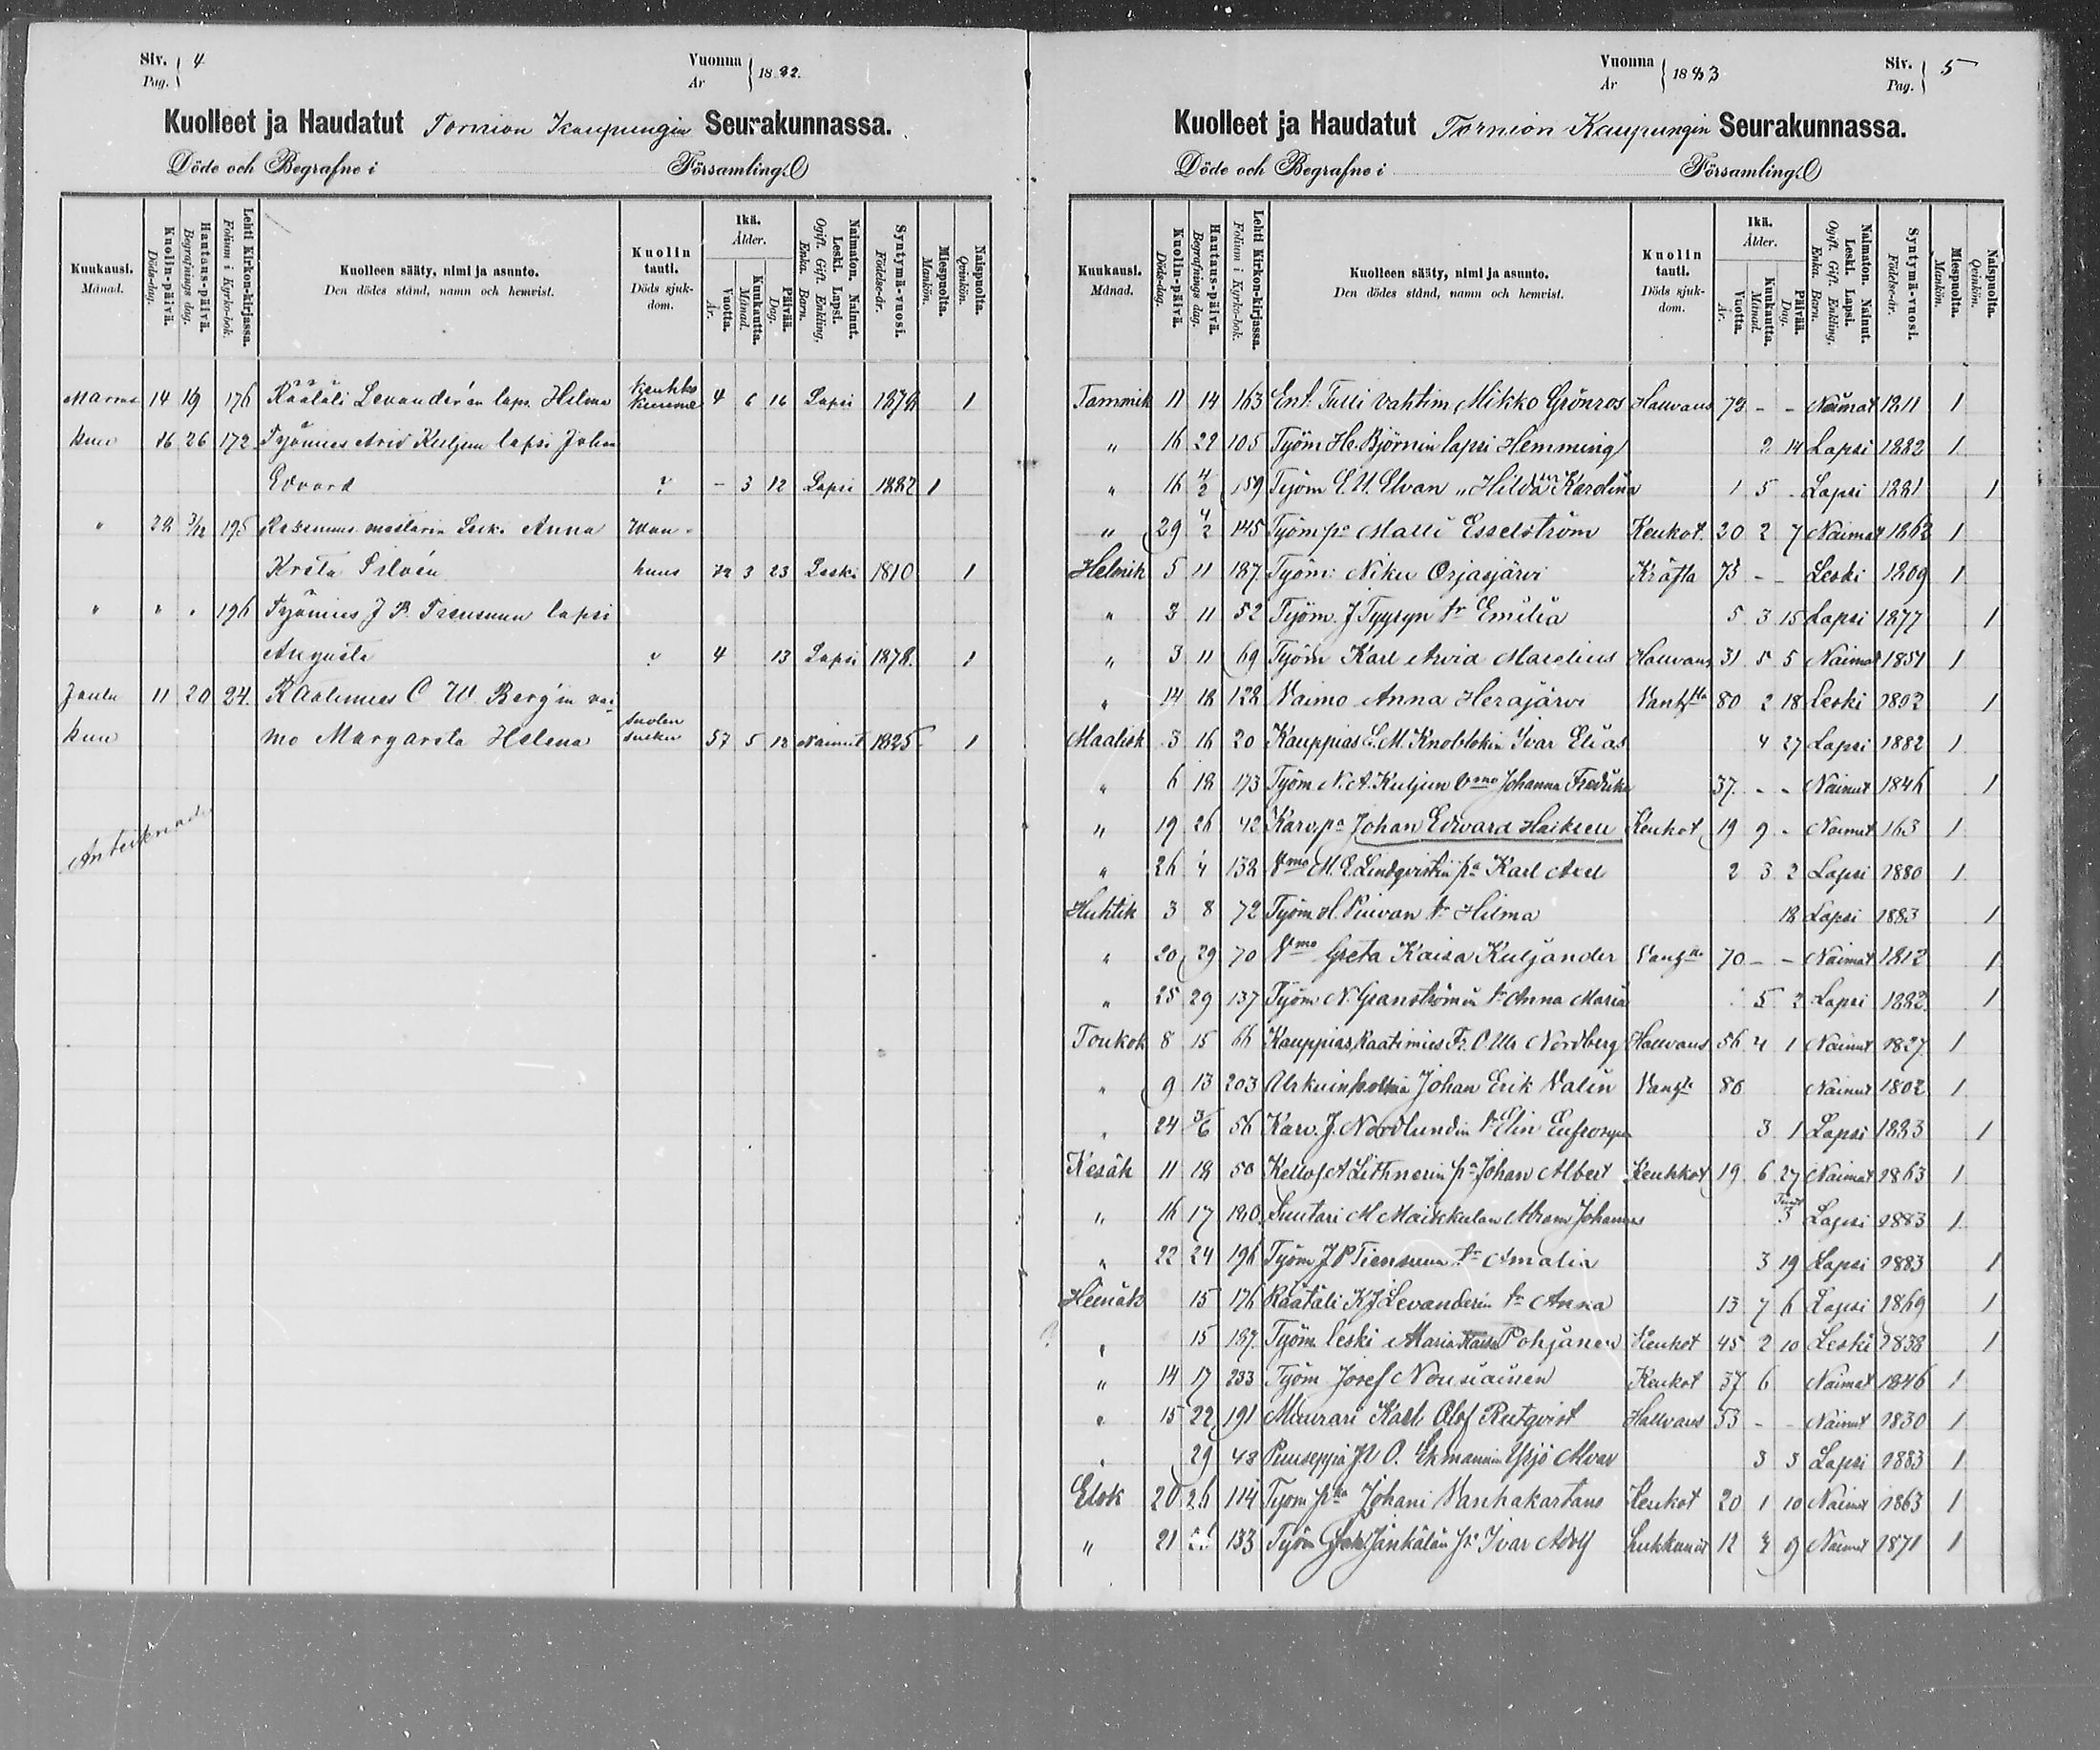 Siv. Pag. 4
Vuonna År 1882.
Kuolleet ja Haudatut Tornion Kaupungin Seurakunnassa.
Döde och Begrafne i Församling.
Kuukausi. Månad.
Kuolin-päivä. Döds-dag.
Hautaus-päivä. Begrafnings dag.
Lehti Kirkon-kirjassa. Folium i Kyrko-bok.
Kuolleen sääty, nimi ja asunto. Den dödes stånd, namn och hemvist.
Kuolin tauti. Döds sjukdom.
Ikä. Ålder.
Vuotta. År.
Kuukautta. Månad.
Päivää. Dag.
Naimaton. Nainut. Leski. Lapsi. Ogift. Gift. Enkling. Enka. Barn.
Syntymä-vuosi. Födelse-år.
Miespuolta. Mankön.
Naispuolta. Qvinkön.
Marras 14 19 176 Räätäli Levander'in laps. Hilma 4 6 16 Lapsi 1878 1
kuu 16 26 172 Työmies Arvid Kuljun lapsi Johan
Edvard ? - 3 12 Lapsi 1882 1
" 28 3/12 195 mestarin Leski Anna Wan-
Kreta Silvén huus 72 3 23 Leski 1810 1
" " " 196 Työmies J P. Tiensuun lapsi
Augusta ? 4 13 Lapsi 1878. 1
Joulu 11 20 24. Raatimies C W. Berg'in vai-
kuu mo Margareta Helena 57 5 18 Nainut 1825 1
Siv. Pag. 5
Vuonna År 1883
Kuolleet ja Haudatut Tornion Kaupungin Seurakunnassa.
Döde och Begrafne i Församling.
Kuukausi. Månad.
Kuolin-päivä. Döds-dag.
Hautaus-päivä. Begrafnings dag.
Lehti Kirkon-kirjassa. Folium i Kyrko-bok.
Kuolleen sääty, nimi ja asunto. Den dödes stånd, namn och hemvist.
Kuolin tauti. Döds sjukdom.
Ikä. Ålder.
Vuotta. År.
Kuukautta. Månad.
Päivää. Dag.
Naimaton. Nainut. Leski. Lapsi. Ogift. Gift. Enkling. Enka. Barn.
Syntymä-vuosi. Födelse-år.
Miespuolta. Mankön.
Naispuolta. Qvinkön.
Tammik 11 14 163 Ent. Tulli vahtim. Mikko Grönros Halvaus 72 - - Naimat 1811 1
" 16 22 105 Työm H. Björnin lapsi Hemming 2 14 Lapsi 1882 1
" 16 4/2 159 Työm E. U. Elvan " Hilda Karolina 1 5 - Lapsi 1881 1
" 29 4/2 145 Työm pa Matti Esselström Keukot. 20 2 7 Naimat 1862 1
Helmik 5 11 187 Työm: Niku Orjasjärvi Kräfta 73 - - Leski 1809 1
" 3 11 52 Työm. J Tyysyn tr Emilia 5 3 15 Lapsi 1877 1
" 3 11 69 Työm Karl Arvid Marelius Halvaus 31 5 5 Naimat 1851 1
" 14 18 128 Vaimo Anna Herajärvi 80 2 18 Leski 1802 1
Maalisk 3 16 20 Kauppias L. M. Knoblokin Ivar Elias 4 27 Lapsi 1882 1
" 6 18 173 Työm N. A. Kuljun vmo Johanna Fredrika 37. - - Nainut 1846 1
" 19 26 42 Karv. pa Johan Edvard Heiksell Keukot 19 9 - Naimat 163 1
" 26 4 132 Vmo M. E. Lindqvistin pa Karl Axel 2 3 2 Lapsi 1880 1
Huhtik 3 8 72 Työm H. tr Hilma 18 Lapsi 1883 1
" 20 29 70 Vmo Greta Kaisa Kuljander 70 - - Naimat 1812 1
" 25 29 137 Työm N. Granströmin tr Anna Maria 5 2 Lapsi 1882 1
Toukok 8 15 66 Kauppias, Raatimies Fr. O. Nordberg Halvaus 56 4 1 Nainut 1827 1
" 9 13 203 Johan Erik Valin 80 Nainut 1802 1
" 24 3/6 56 Karv. J. Nordlundin tr Elin 3 1 Lapsi 1883 1
Kesäk 11 18 50 Kellos A Lithnerin pa Johan Albert Keuhkot 19 6 27 Naimat 1863 1
" 16 17 180 Suutari M Maikkulan Abram Johannes 3 Lapsi 1883 1
" 22 24 196 Työm J P Tiensuun tr Amalia 3 19 Lapsi 1883 1
Heinäk 15 176 Räätäli K J Levanderin tr Anna 13 7 6 Lapsi 1869 1
" 15 187 Työm leski Maria Kaisa Pohjanen Keukot 45 2 10 Leski 1838 1
" 14 17 233 Työm Josef Nousiainen Keukot 37 6 Naimat 1846 1
" 15 22 191 Muurari Karl Olof Rutqvist Halvaus 53 - - Nainut 1830 1
" 29 48 Puuseppä O. Ekmannin Yrjö Alvar 3 3 Lapsi 1883 1
Elok 20 26 114 Työm pka Johani Vanhakartano Keukot 20 1 10 Naimat 1863 1
" 21 133 Työm Jänkälän pa Ivar Adolf 12 4 9 Naimat 1871 1